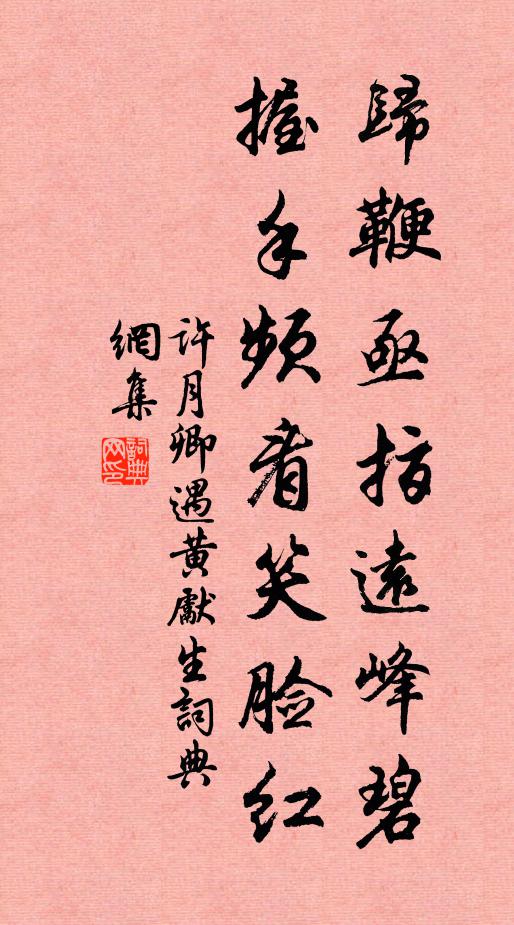 歸鞭亟指遠峰碧
握手頻看笑脸红
許月卿遇黄獻生詞典
網集
詞典网印